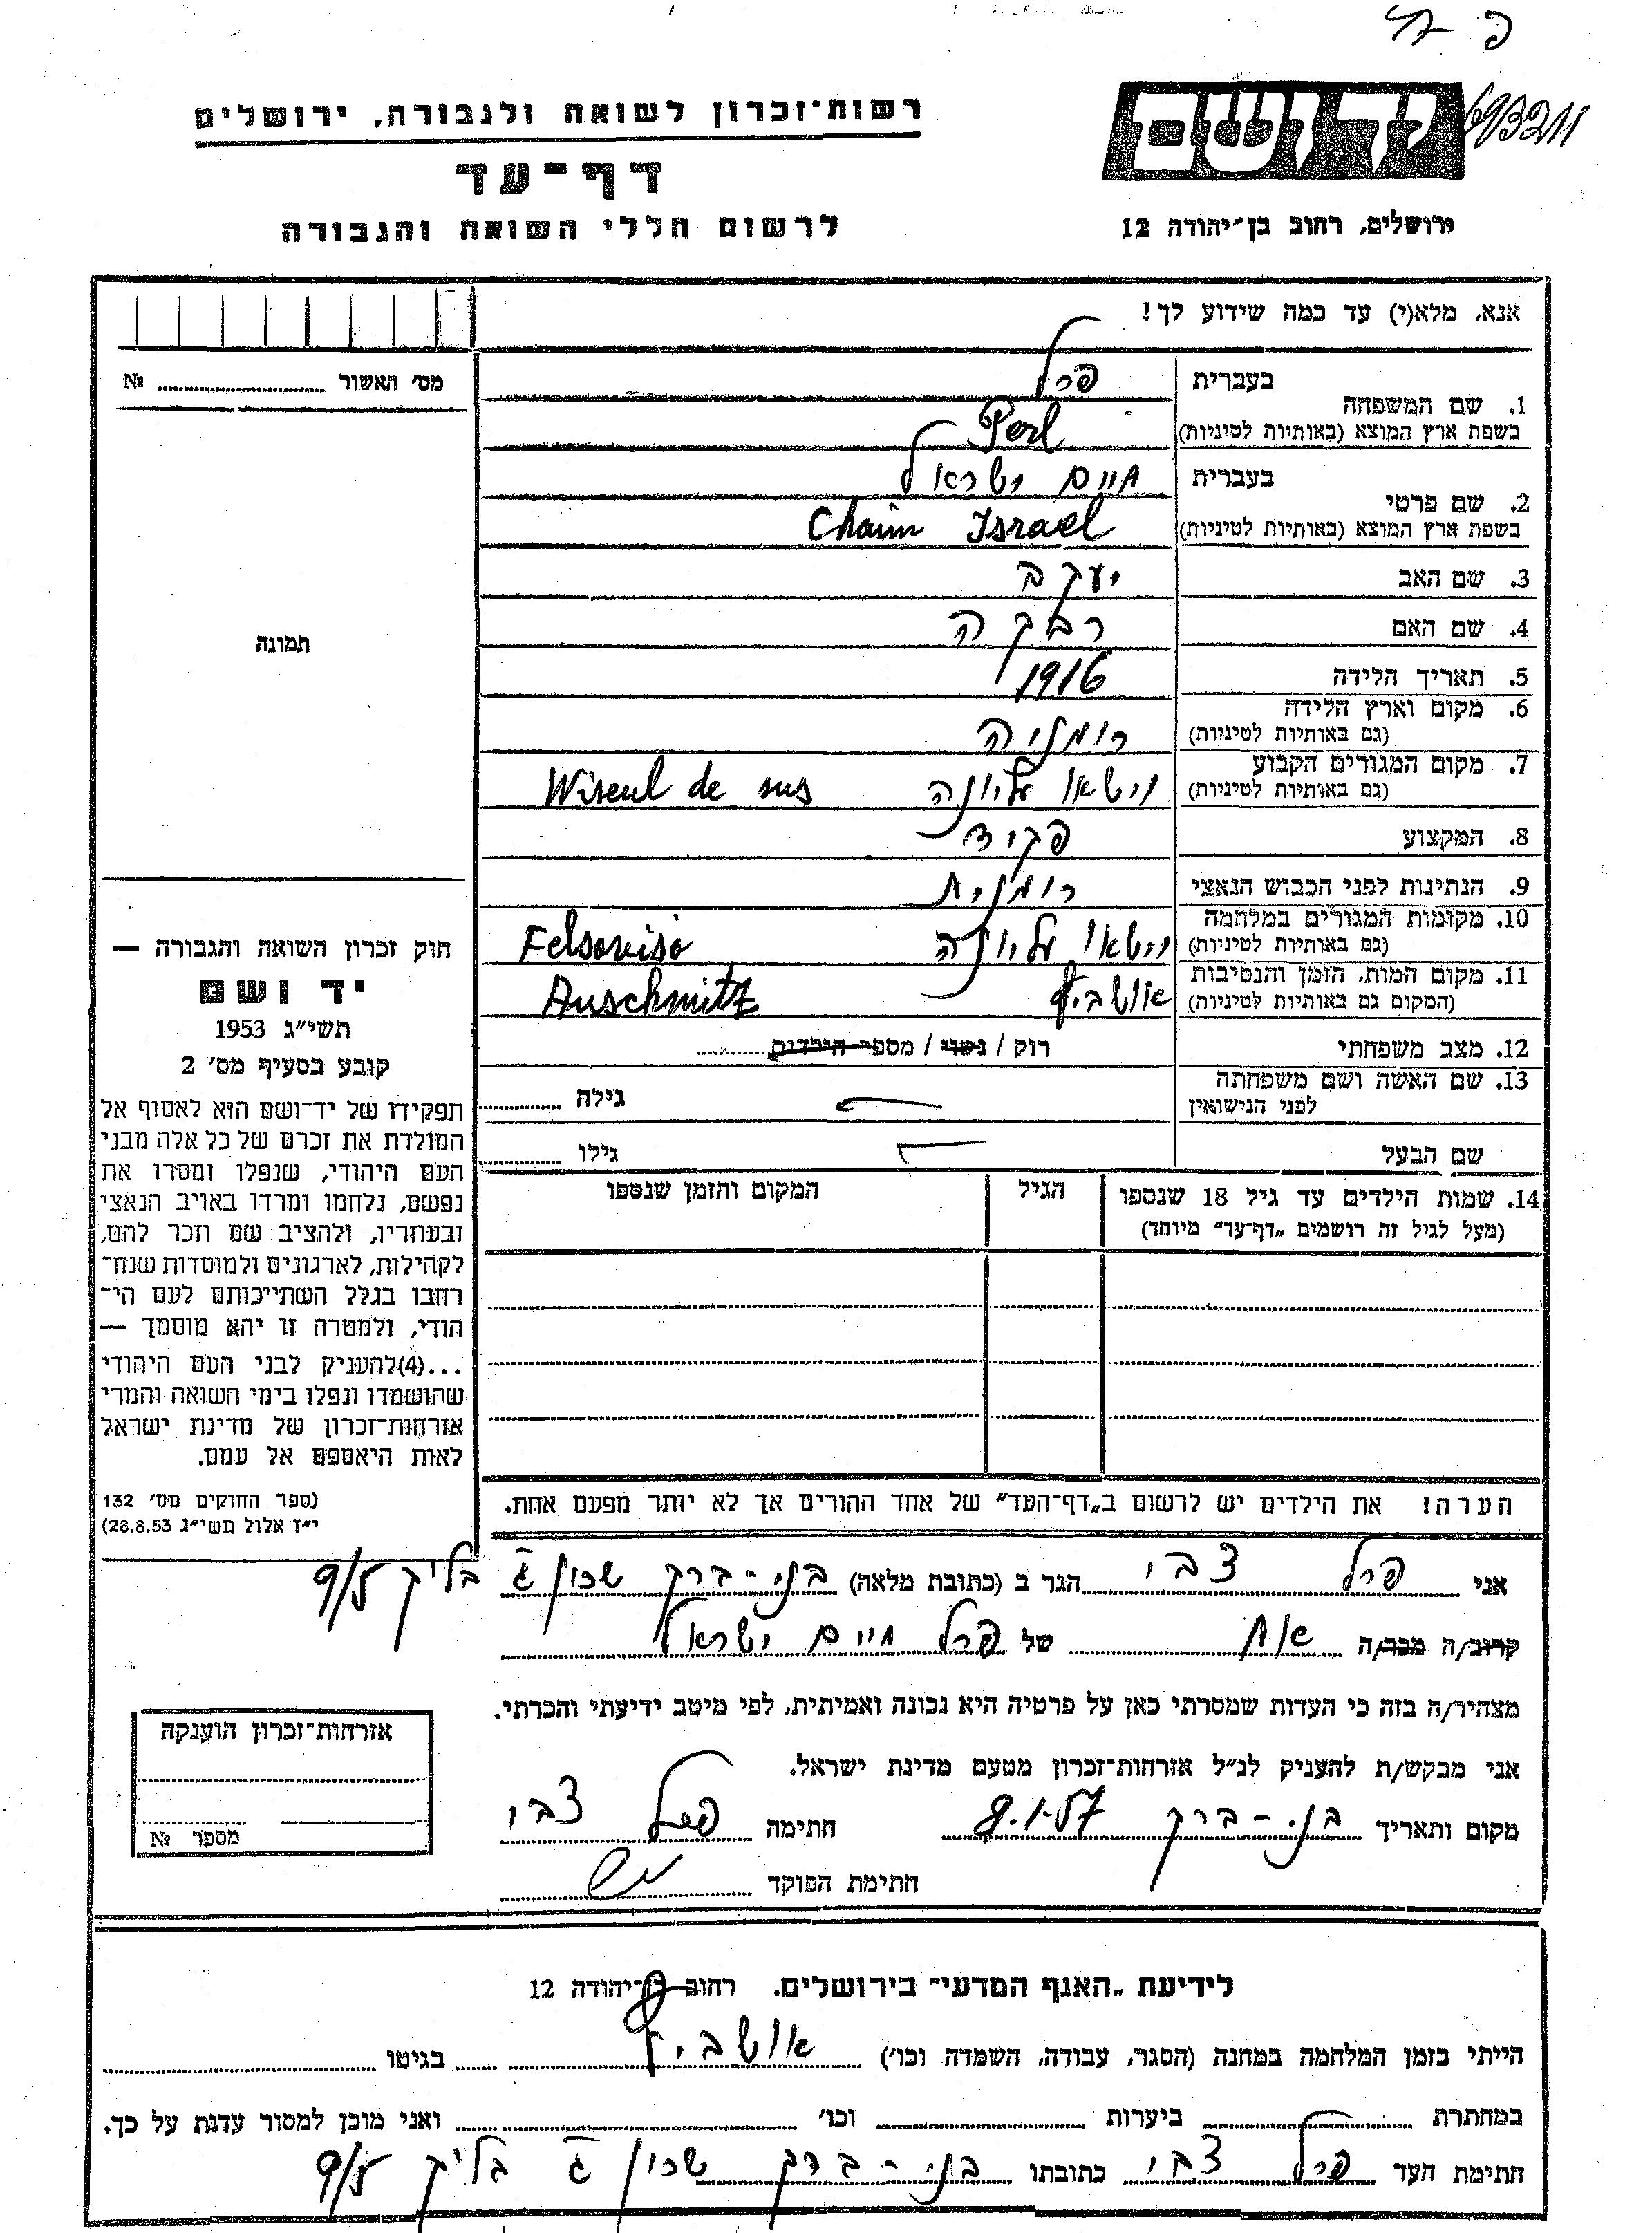 פ
693211
יד ושם
ירושלים, רחוב בן־יהודה 12
רשות־זכרון לשואה ולגבורה, ירושלים
דף־עד
לרשום חללי השואה והגבורה
אנא, מלא(י) עד כמה שידוע לך!
1. שם המשפחה
בעברית פרל
בשפת ארץ המוצא (באותיות לטיניות) Perl
2. שם פרטי
בעברית חיים ישראל
בשפת ארץ המוצא (באותיות לטיניות) Chaim Israel
3. שם האב יעקב
4. שם האם רבקה
5. תאריך הלידה 1916
6. מקום וארץ הלידה
(גם באותיות לטיניות) רומניה
7. מקום המגורים הקבוע
(גם באותיות לטיניות) וישאו עליונה Wiseul de sus
8. המקצוע פקיד
9. הנתינות לפני הכבוש הנאצי רומנית
10. מקומות המגורים במלחמה
(גם באותיות לטיניות) וישאו עליונה Felsoviso
11. מקום המות, הזמן והנסיבות
(המקום גם באותיות לטיניות) אושביץ Auschwitz
12. מצב משפחתי רוק / נשוי / מספר הילדים
13. שם האשה ושם משפחתה
לפני הנישואין — גילה
שם הבעל — גילו
14. שמות הילדים עד גיל 18 שנספו
(מעל לגיל זה רושמים „דף־עד” מיוחד)
הגיל
המקום והזמן שנספו
הערה! את הילדים יש לרשום ב„דף־העד” של אחד ההורים אך לא יותר מפעם אחת.
מס׳ האשור № 
תמונה
חוק זכרון השואה והגבורה —
יד ושם
תשי״ג 1953
קובע בסעיף מס׳ 2
תפקידו של יד־ושם הוא לאסוף אל
המולדת את זכרם של כל אלה מבני
העם היהודי, שנפלו ומסרו את
נפשם, נלחמו ומרדו באויב הנאצי
ובעוזריו, ולהציב שם וזכר להם,
לקהילות, לארגונים ולמוסדות שנח־
רבו בגלל השתייכותם לעם הי־
הודי, ולמטרה זו יהא מוסמך —
...(4)להעניק לבני העם היהודי
שהושמדו ונפלו בימי השואה והמרי
אזרחות־זכרון של מדינת ישראל
לאות היאספם אל עמם.
(ספר החוקים מס׳ 132
י״ז אלול תשי״ג 28.8.53)
אני פרל צבי הגר ב (כתובת מלאה) בני-ברק שכון ג׳ בליק 9/5
קרוב/ה מכר/ה אח של פרל חיים ישראל
מצהיר/ה בזה כי העדות שמסרתי כאן על פרטיה היא נכונה ואמיתית, לפי מיטב ידיעתי והכרתי.
אני מבקש/ת להעניק לנ״ל אזרחות־זכרון מטעם מדינת ישראל.
מקום ותאריך בני-ברק 8.1.57 חתימה פרל צבי
חתימת הפוקד
אזרחות־זכרון הוענקה
מספר №
לידיעת „האגף המדעי” בירושלים. רחוב בן־יהודה 12
הייתי בזמן המלחמה במחנה (הסגר, עבודה, השמדה וכו׳) אושביץ בגיטו
במחתרת ביערות וכו׳ ואני מוכן למסור עדות על כך.
חתימת העד פרל צבי כתובתו בני-ברק שכון ג׳ בליק 9/5